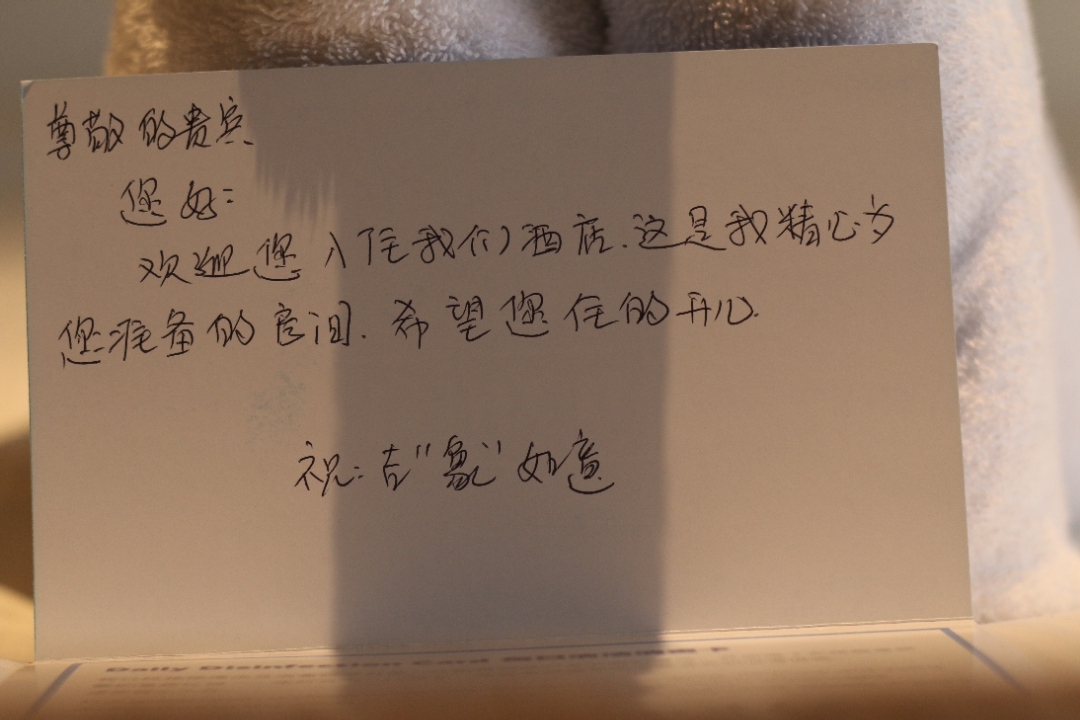 尊敬的贵宾
您好:
欢迎您入住我们酒店.这是我精心为
您准备的房间.希望您住的开心.
祝:吉"象"如意
Daily Disinfection Card